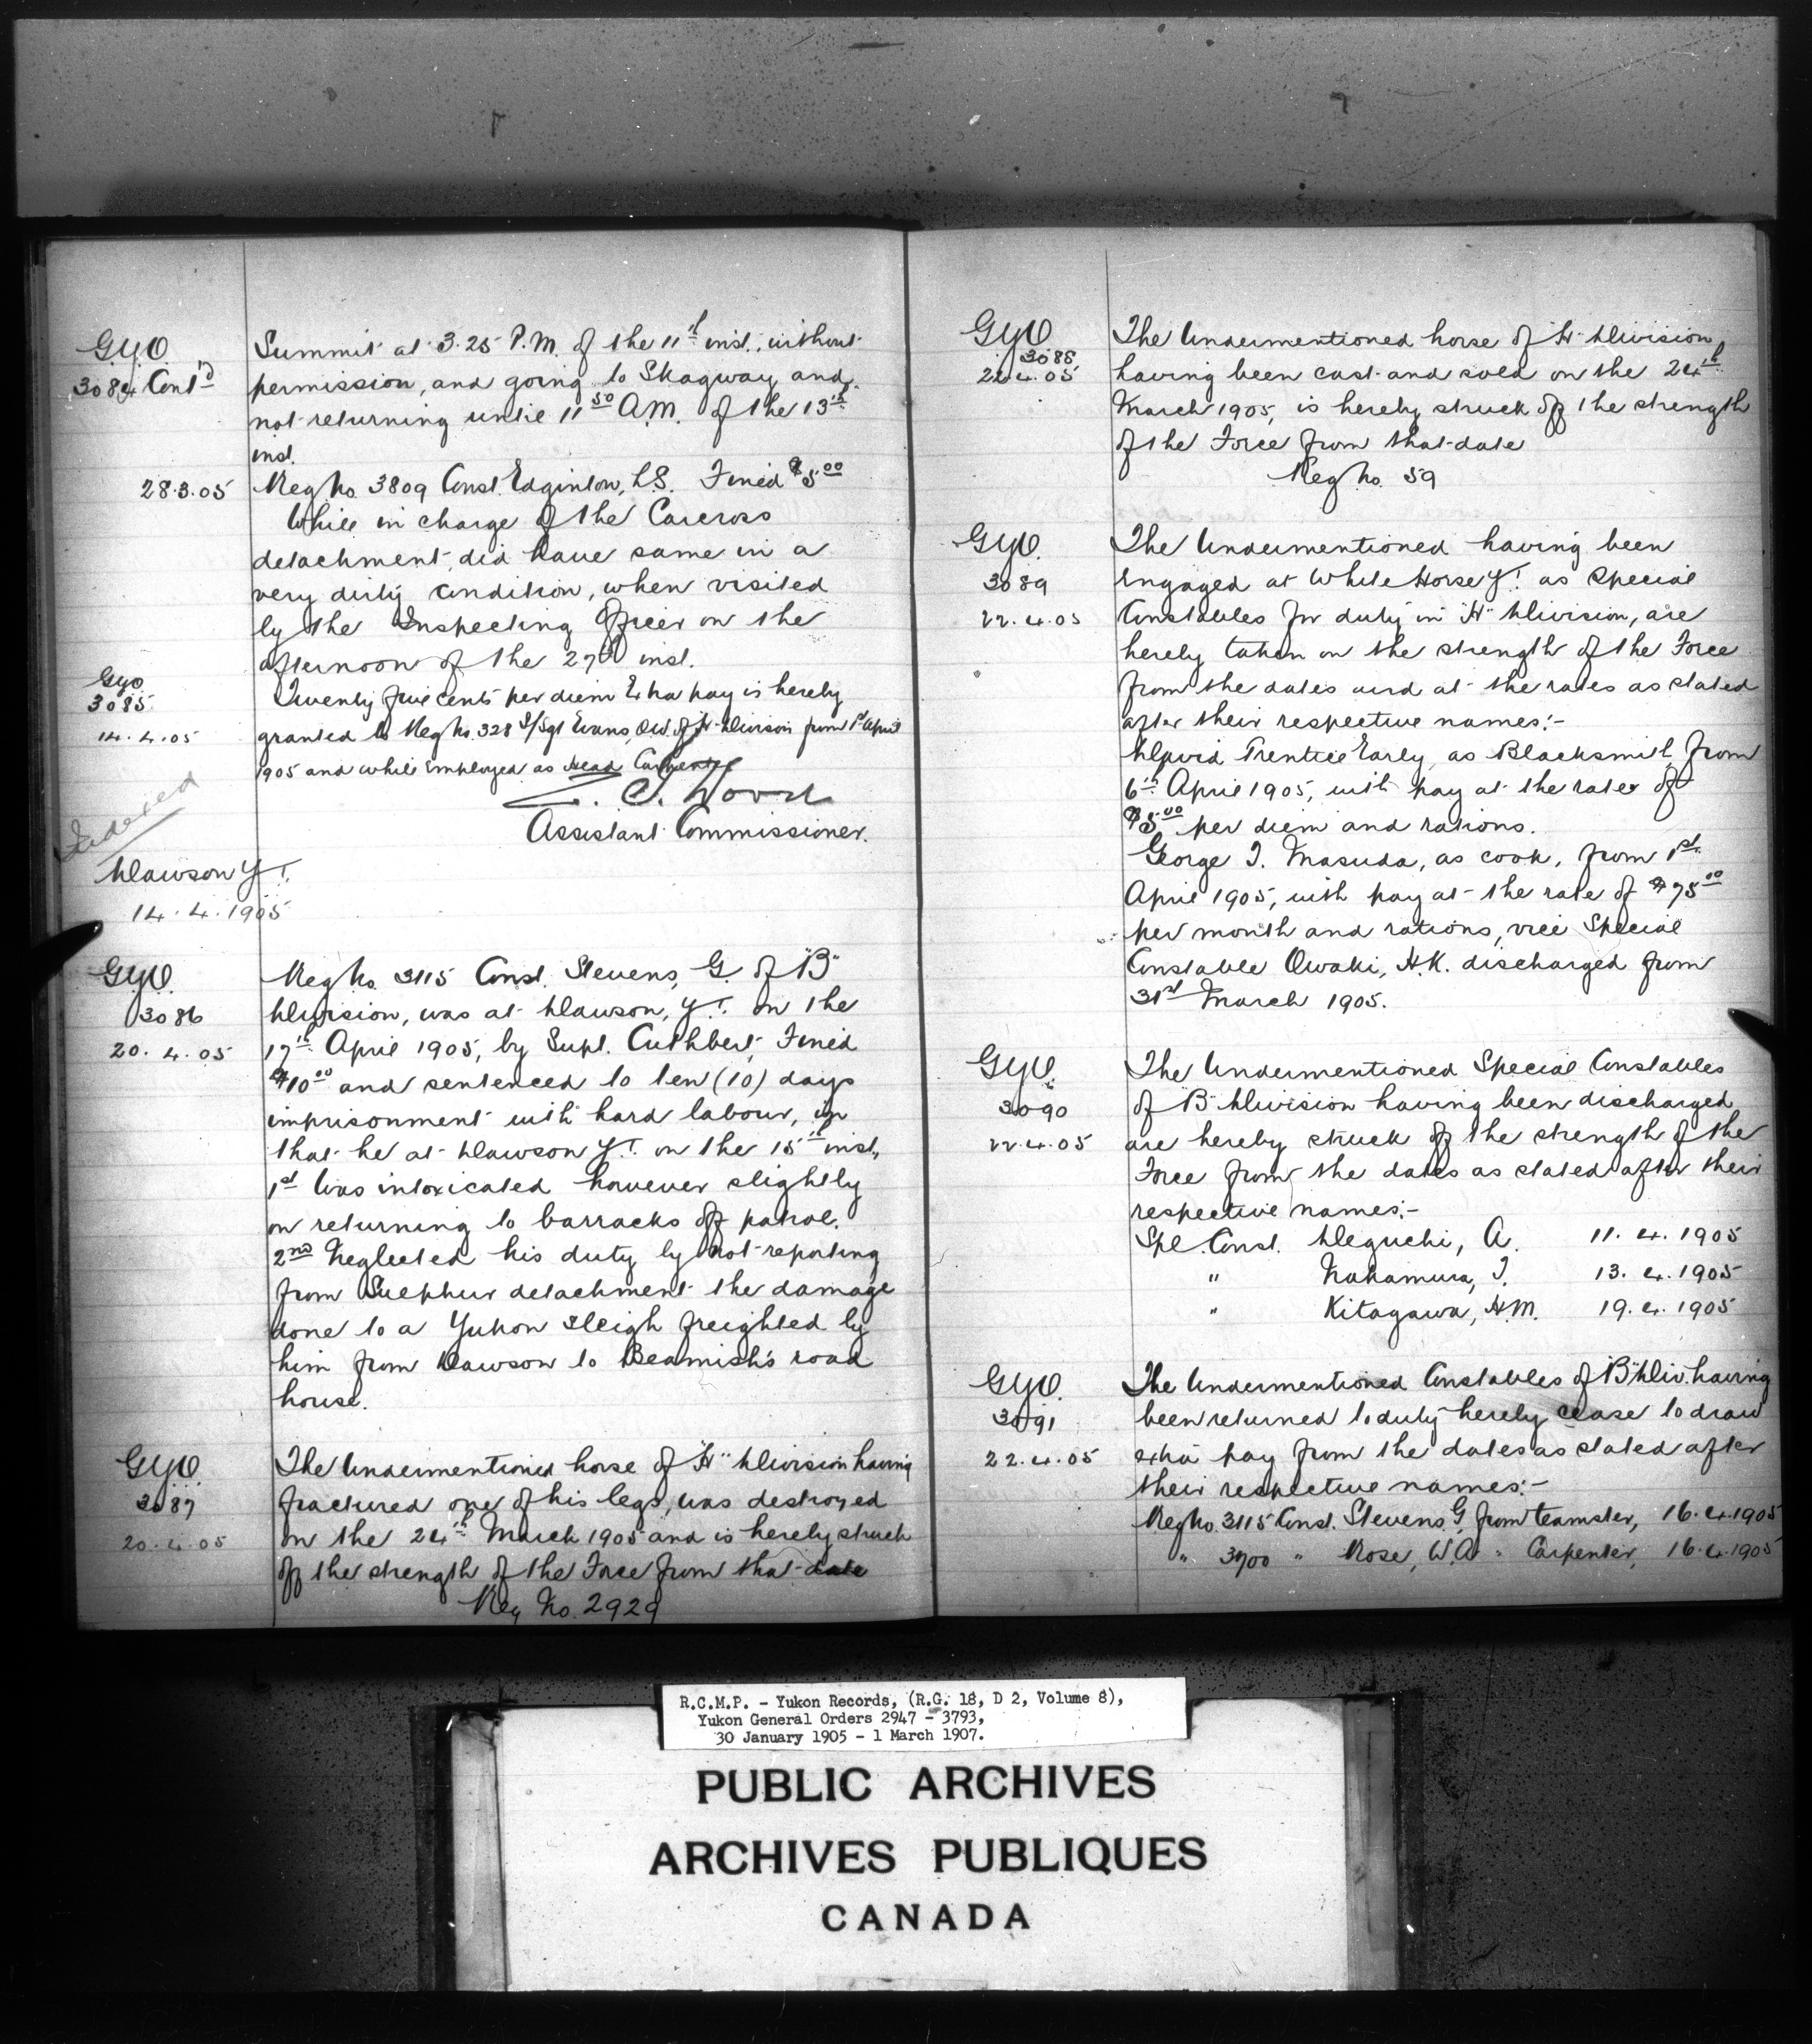 G.Y.O.
3084 Cont'd
Summit at 3.25 P.M. of the 11th inst., without
permission, and going to Skagway and
not returning until 11 50 A.M. of the 13th
inst.
28.3.05
Reg No. 3809 Const. Edginton, L.S. Fined $5.00
While in charge of the Carcross
detachment, did have same in a
very dirty condition, when visited
by the Inspecting Officer on the
afternoon of the 27th inst.
GYO
3085
14.4.05
Twenty five cents per diem Extra pay is hereby
granted to Reg No. 328 S/Sgt Evans, O.W. of "H" Division from 1st April
1905 and while employed as Head Carpenter
Z. T. Wood
Assistant Commissioner.
Indexed
Dawson Y.T.
14.4.1905
G.Y.O.
3086
20.4.05
Reg No. 3115 Const. Stevens, G. of "B"
Division, was at Dawson, Y.T. on the
17th April 1905, by Supt. Cuthbert, Fined
$10.00 and sentenced to ten (10) days
imprisonment with hard labour, in
that he at Dawson Y.T. on the 15th inst,
1st Was intoxicated however slightly
on returning to barracks off patrol.
2nd Neglected his duty by not reporting
from Sulphur detachment the damage
done to a Yukon Sleigh freighted by
him from Dawson to Beamish's road
house.
G.Y.O.
3087
20.4.05
The Undermentioned horse of "H" Division having
fractured one of his legs, was destroyed
on the 24th March 1905 and is hereby struck
off the strength of the Force from that date
Reg No. 2929
G.Y.O.
3088
22.4.05
The Undermentioned horse of "H" Division
having been cast and sold on the 24th
March 1905, is hereby struck off the strength
of the Force from that date
Reg No. 59
G.Y.O.
3089
22.4.05
The Undermentioned having been
Engaged at White Horse Y.T. as Special
Constables for duty in "H" Division, are
hereby taken on the strength of the Force
from the dates and at the rates as stated
after their respective names:-
David Prentice Early, as Blacksmith, from
6th April 1905, with pay at the rate of
$5.00 per diem and rations.
George T. Masuda, as cook, from 1st
April 1905, with pay at the rate of $75.00
per month and rations, vice Special
Constable Owaki, H.K. discharged from
31st March 1905.
G.Y.O.
3090
22.4.05
The Undermentioned Special Constables
of "B" Division having been discharged
are hereby struck off the strength of the
Force from the dates as stated after their
respective names:-
Spl. Const. Deguchi, A. 11.4.1905
" Nakamura, T. 13.4.1905
" Kitagawa, H.M. 19.4.1905
G.Y.O.
3091
22.4.05
The Undermentioned Constables of "B" Div. having
been returned to duty hereby cease to draw
extra pay from the dates as stated after
their respective names:-
Reg No. 3115 Const. Stevens G, from teamster, 16.4.1905
" 3700 " Rose, W.A. " Carpenter, 16.4.1905
R.C.M.P. - Yukon Records, (R.G. 18, D 2, Volume 8),
Yukon General Orders 2947 - 3793,
30 January 1905 - 1 March 1907.
PUBLIC ARCHIVES
ARCHIVES PUBLIQUES
CANADA